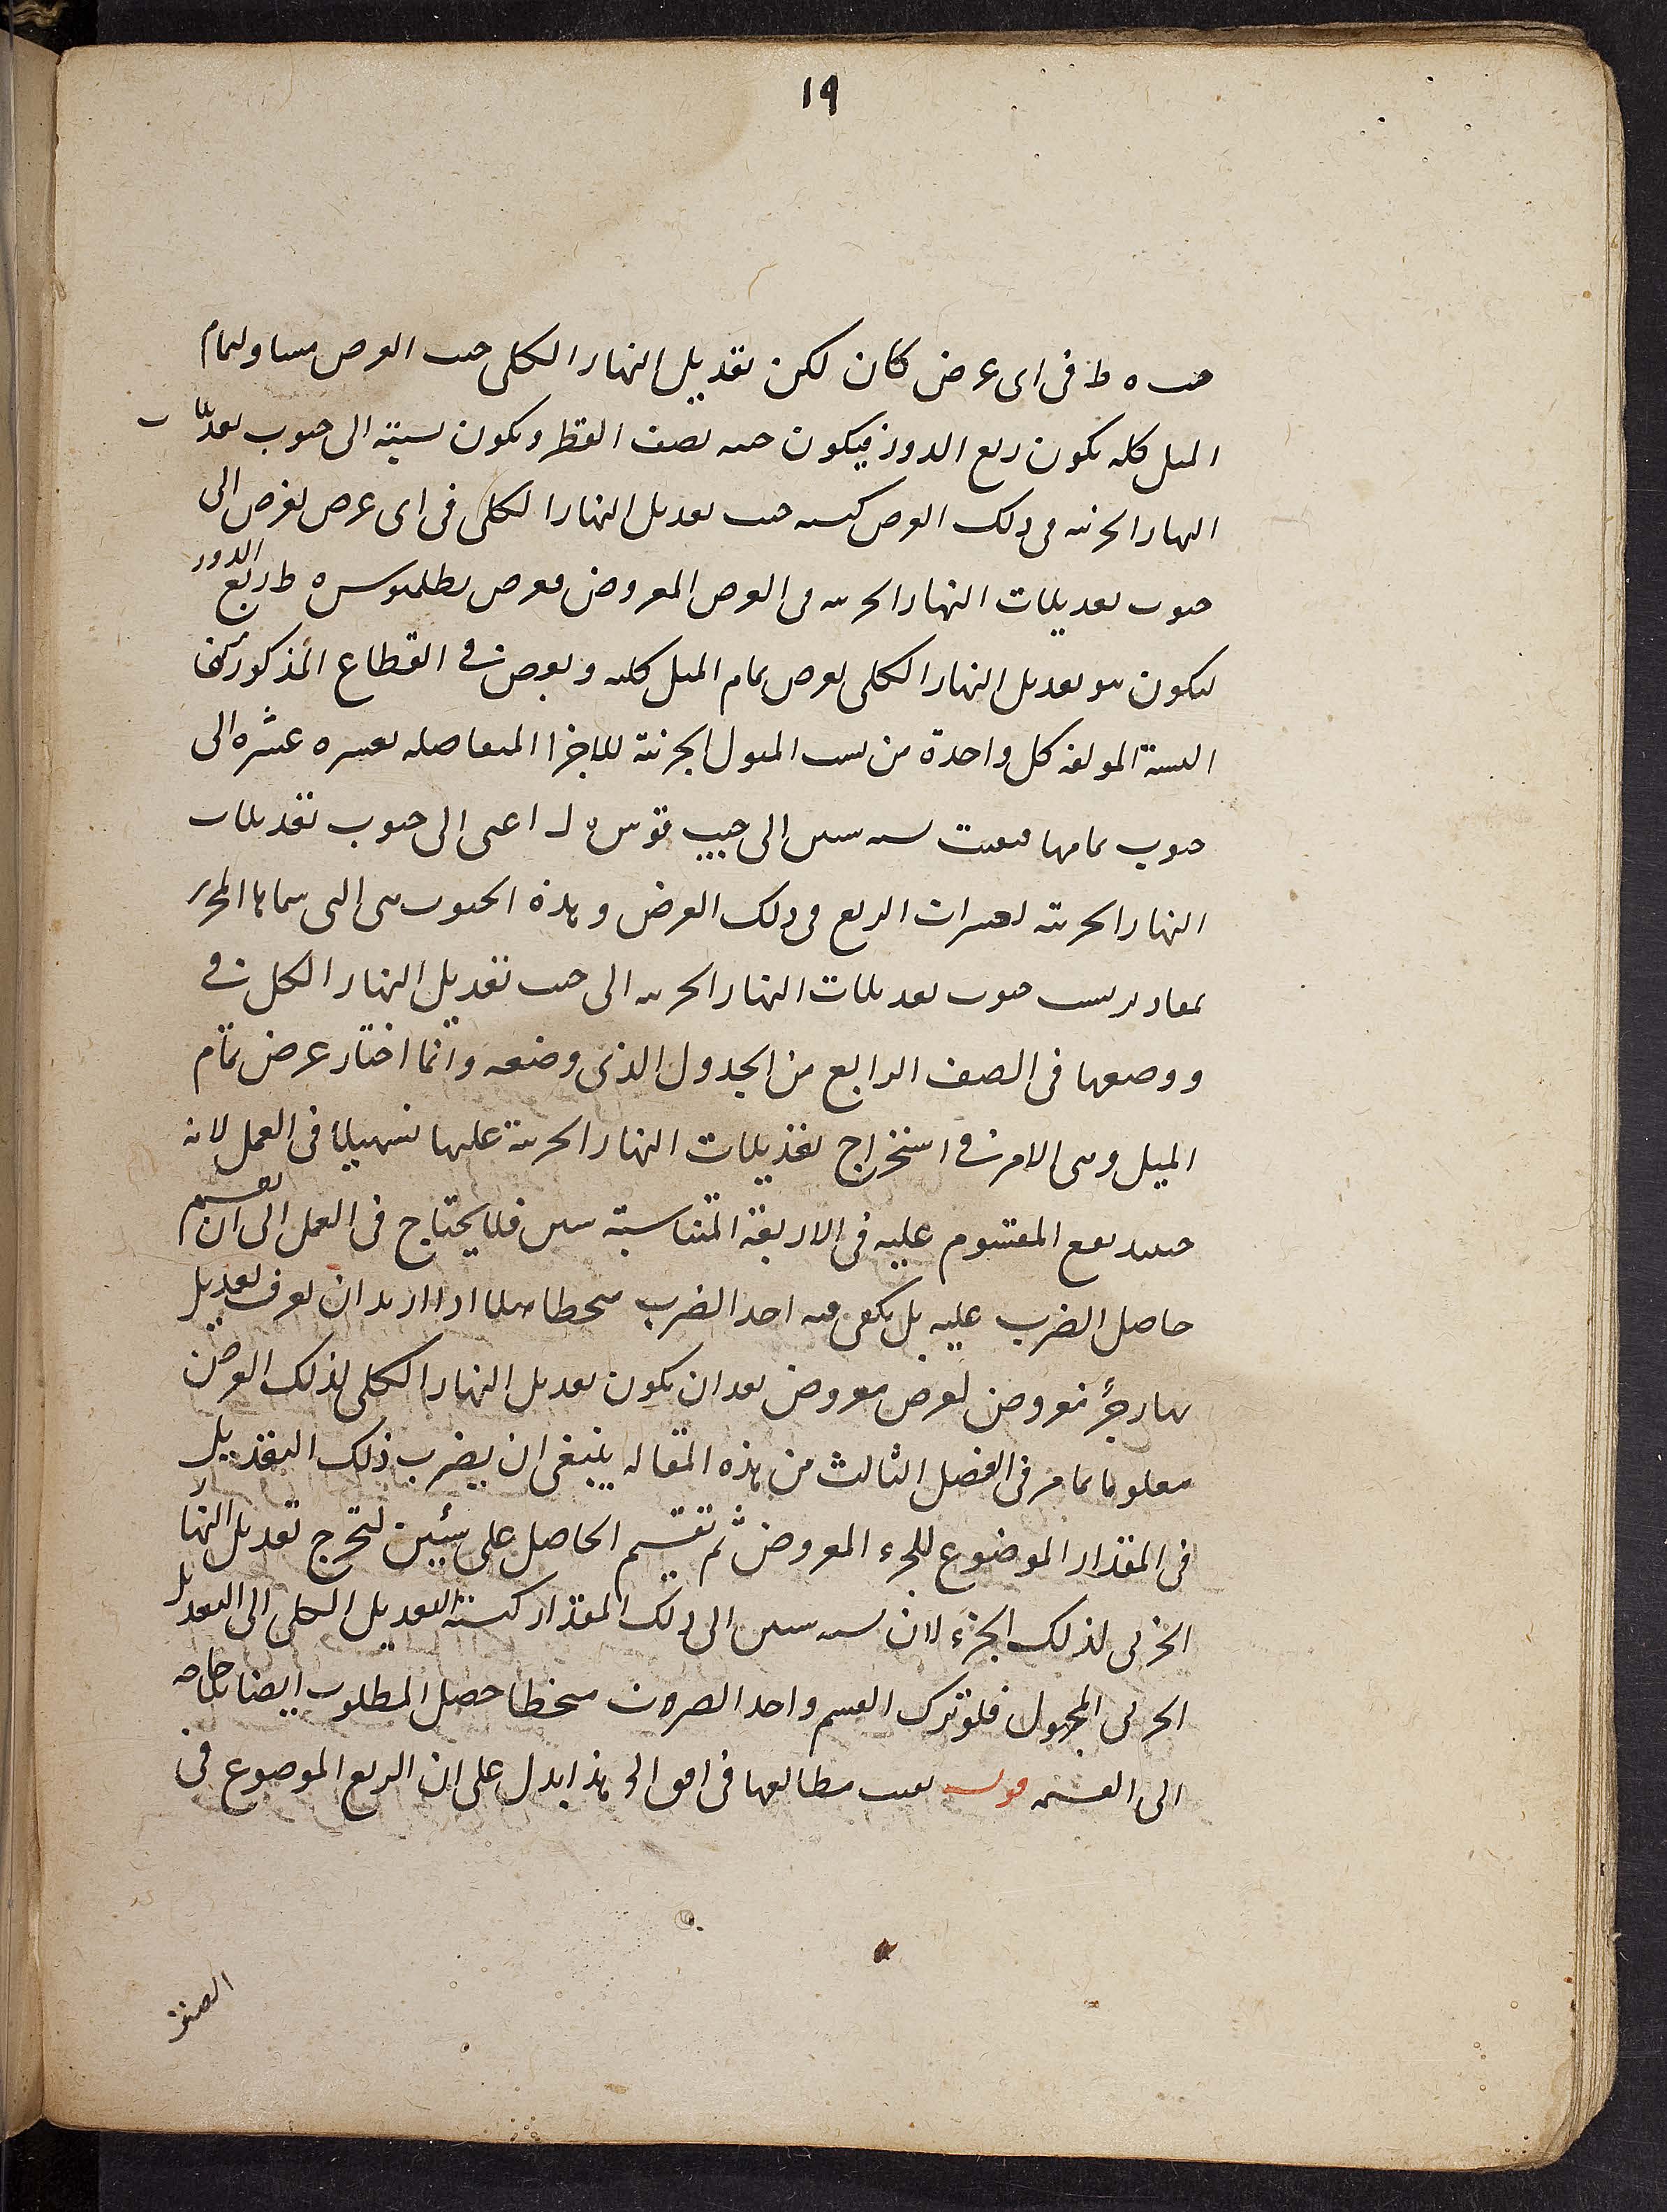 ١٩
جيب ه ط فى اى عرض كان لكن تعديل النهار الكلى حيث العرض مساو لتمام
الميل كله يكون ربع الدور فيكون جيبه نصف القطر ويكون نسبته الى جيوب تعديلات
النهار الجزئيه فى ذلك العرض كنسبه جيب تعديل النهار الكلى فى اى عرض يفرض الى
جيوب تعديلات النهار الجزئيه فى العرض المفروض ففرض بطلميوس ه ط ربع الدور
ليكون هو تعديل النهار الكلى لعرض تمام الميل كله و بعرض فى القطاع المذكور
النسبة المولفه كل واحدة من نسب الميول الجزئية للاجزا المتفاضله بعشره عشره الى
جيوب تمامها فبقيت نسبه ستين الى جيب قوس ه ل اعنى الى جيوب تعديلات
النهار الجزئيه لعشرات الربع فى ذلك العرض وهذه الجيوب هى التى سماها المحرر
بمقادير نسب جيوب تعديلات النهار الجزئيه الى جيب تعديل النهار الكلى فى
ووضعها فى الصف الرابع من الجدول الذى وضعه وانما اختار عرض تمام
الميل وبنى الامر فى استخراج تعديلات النهار الجزئية عليها تسهيلا فى العمل لانه
حينئذ يقع المقسوم عليه فى الاربعة المتناسبة ستين فلا يحتاج فى العمل الى ان يقسم
حاصل الضرب عليه بل يكفى فيه اخذ الضرب منحطا مثلا اذا اريد ان يعرف تعديل
نهار جزء مفروض لعرض مفروض بعد ان يكون تعديل النهار الكلى لذلك العرض
معلوما بما مر فى الفصل الثالث من هذه المقاله ينبغى ان يضرب ذلك التعديل
فى المقدار الموضوع للجزء المفروض ثم تقسم الحاصل على ستين ليخرج تعديل النهار
الجزئى لذلك الجزء لان نسبه ستين الى ذلك المقدار كنسبة التعديل الكلى الى التعديل
الجزئى المجهول فلو ترك القسم واخذ الضرب منحطا حصل المطلوب ايضا بلا حاجه
الى القسمه قوله مطالعها فى افق الخ هذا يدل على ان الربع الموضوع فى
الصف